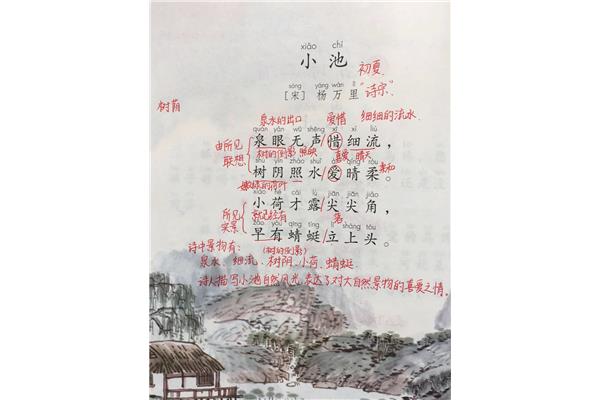 xiǎo chí
小池
初夏
sòng yáng wàn lǐ
[宋] 杨万里
“诗宗”
树荫
泉水的出口 爱惜 细细的流水
quán yǎn wú shēng xī xì liú
泉眼无声/惜细流，
由所见
联想
树的倒影 照映 喜爱 晴天
shù yīn zhào shuǐ ài qíng róu
树阴照水/爱晴柔。
柔和
嫩绿的荷叶
xiǎo hé cái lù jiān jiān jiǎo
小荷才露/尖尖角，
所见
实景
就已经有 落
zǎo yǒu qīng tíng lì shàng tóu
早有蜻蜓/立上头。
诗中景物有：
(树的倒影)
泉水、细流、树阴、小荷、蜻蜓
诗人描写小池自然风光，表达了对大自然景物的喜爱之情。